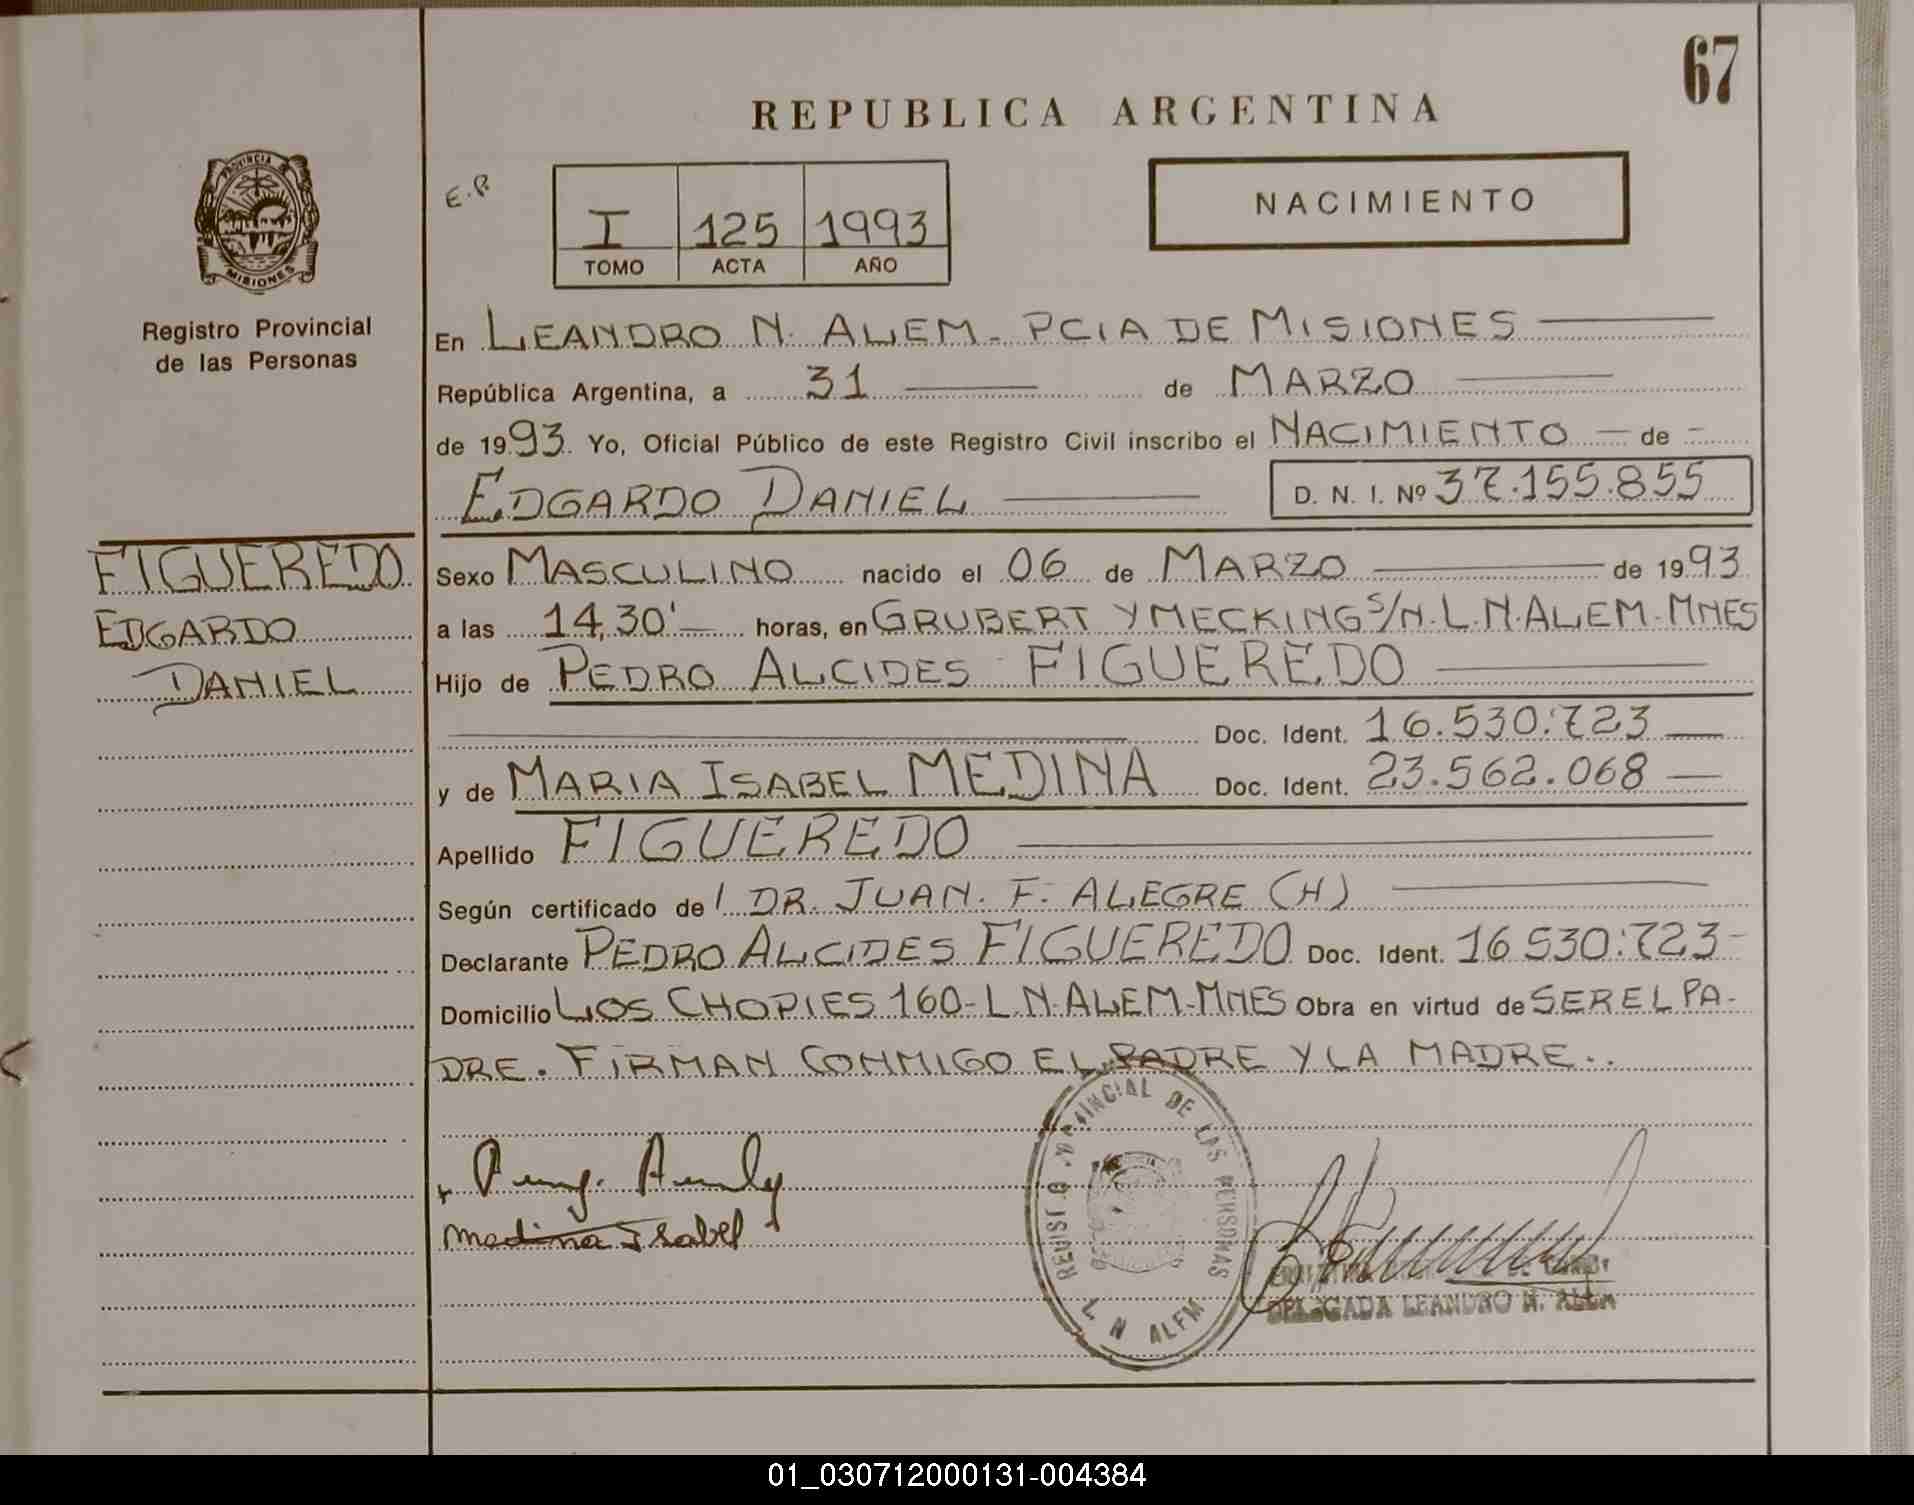 67
REPUBLICA ARGENTINA
PROVINCIA DE
MISIONES
Registro Provincial
de las Personas
E.P.
I 125 1993
TOMO ACTA AÑO
NACIMIENTO
En LEANDRO N. ALEM - PCIA DE MISIONES
República Argentina, a 31 de MARZO
de 1993. Yo, Oficial Público de este Registro Civil inscribo el NACIMIENTO — de -
EDGARDO DANIEL
D. N. I. Nº 37.155.855
FIGUEREDO
EDGARDO
DANIEL
Sexo MASCULINO nacido el 06 de MARZO de 1993
a las 14,30' horas, en GRUBERT Y MECKING S/N. L.N. ALEM - MNES
Hijo de PEDRO ALCIDES FIGUEREDO
Doc. Ident. 16.530.723
y de MARIA ISABEL MEDINA Doc. Ident. 23.562.068
Apellido FIGUEREDO
Según certificado de l DR. JUAN. F. ALEGRE (H)
Declarante PEDRO ALCIDES FIGUEREDO Doc. Ident. 16.530.723-
Domicilio LOS CHOPIES 160- L.N. ALEM - MNES Obra en virtud de SER EL PA-
DRE. FIRMAN CONMIGO EL PADRE Y LA MADRE..
Medina Isabel
PROVINCIAL DE LAS PERSONAS
L. N ALEM
DELEGADA LEANDRO N. ALEM
01_030712000131-004384